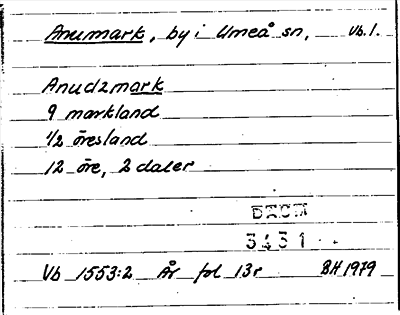 Anumark, by i Umeå sn, Vb. 1.
Anudzmark
9 markland
1/2 öresland
12 öre, 2 daler
3431
Vb 1553:2 År fol 13r BH 1979